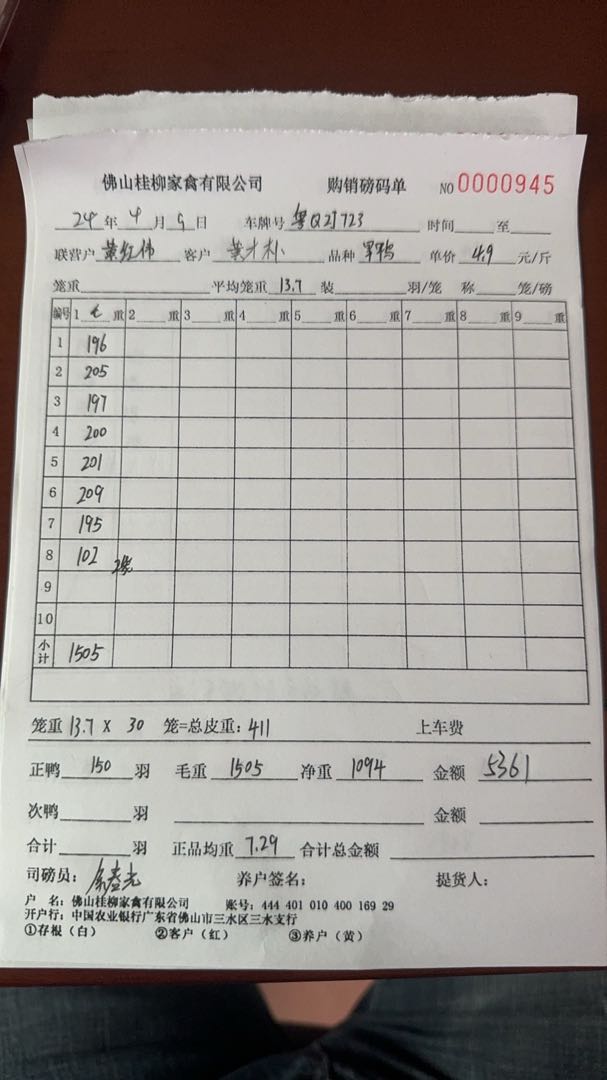 佛山桂柳家禽有限公司 购销磅码单 NO 0000945
24年4月9日 车牌号 粤Q2J723 时间____至____
联营户 黄红伟 客户 黄才朴 品种 单价 4.9 元/斤
笼重____平均笼重 13.7 装____羽/笼 称____笼/磅
编号 1 重 2 重 3 重 4 重 5 重 6 重 7 重 8 重 9 重
1 196
2 205
3 197
4 200
5 201
6 209
7 195
8 102 2笼
9
10
小计 1505
笼重 13.7 X 30 笼=总皮重:411 上车费
正鸭 150 羽 毛重 1505 净重 1094 金额 5361
次鸭____羽 金额____
合计____羽 正品均重 7.29 合计总金额____
司磅员: 养户签名: 提货人:
户 名:佛山桂柳家禽有限公司 账号:444 401 010 400 169 29
开户行:中国农业银行广东省佛山市三水区三水支行
①存根(白) ②客户(红) ③养户(黄)